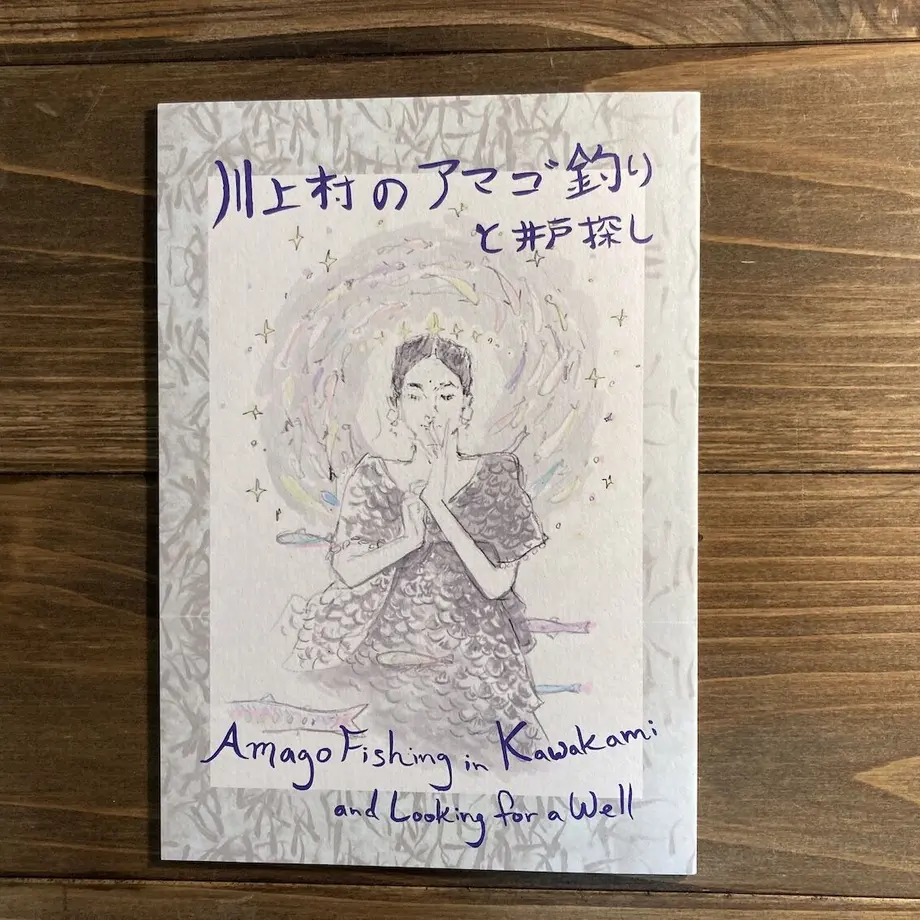 川上村のアマゴ釣り
と井戸探し
Amago Fishing in Kawakami
and Looking for a Well